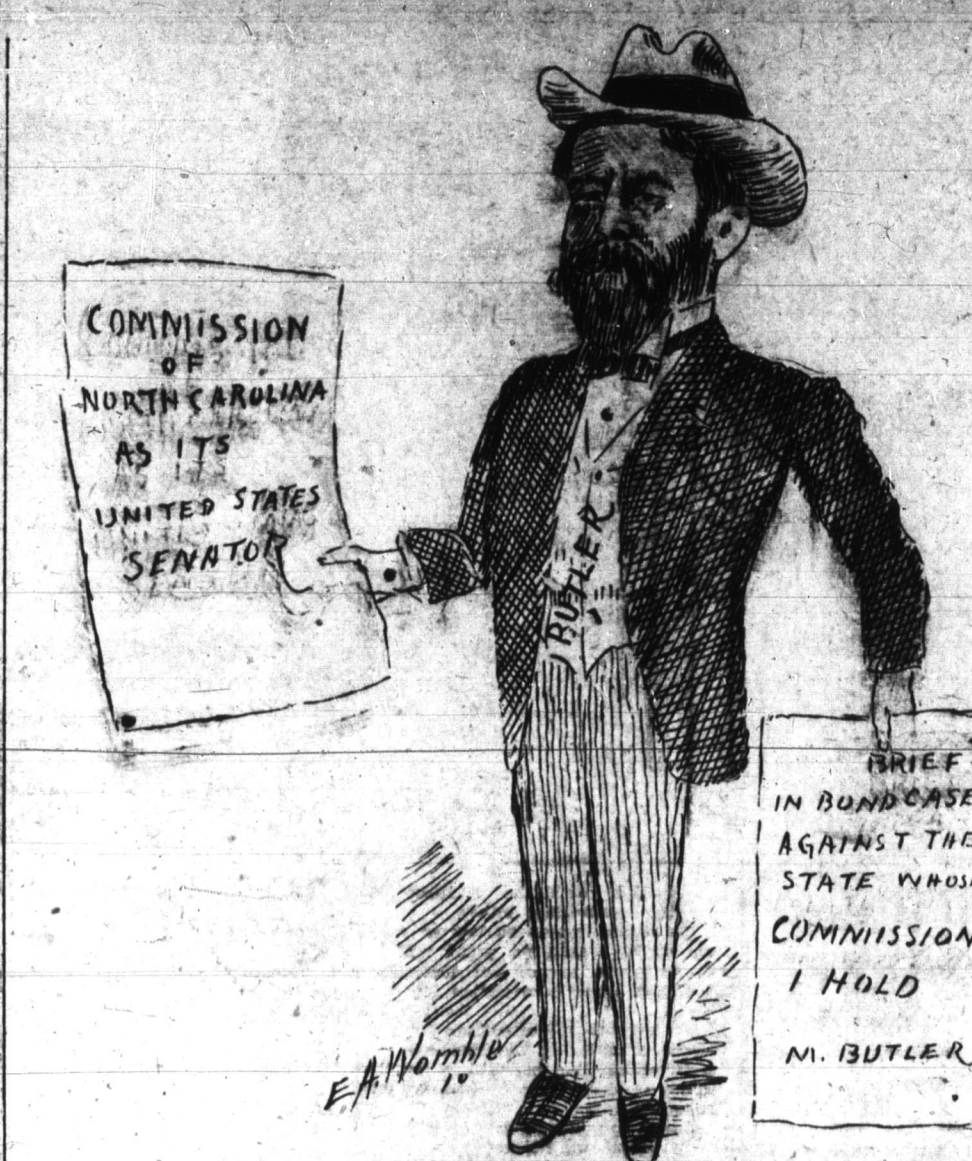 COMMISSION
OF
NORTH CAROLINA
AS ITS
UNITED STATES
SENATOR
BUTLER
BRIEF
IN BOND CASE
AGAINST THE
STATE WHOSE
COMMISSION
I HOLD
M. BUTLER
E.A. Womble
10